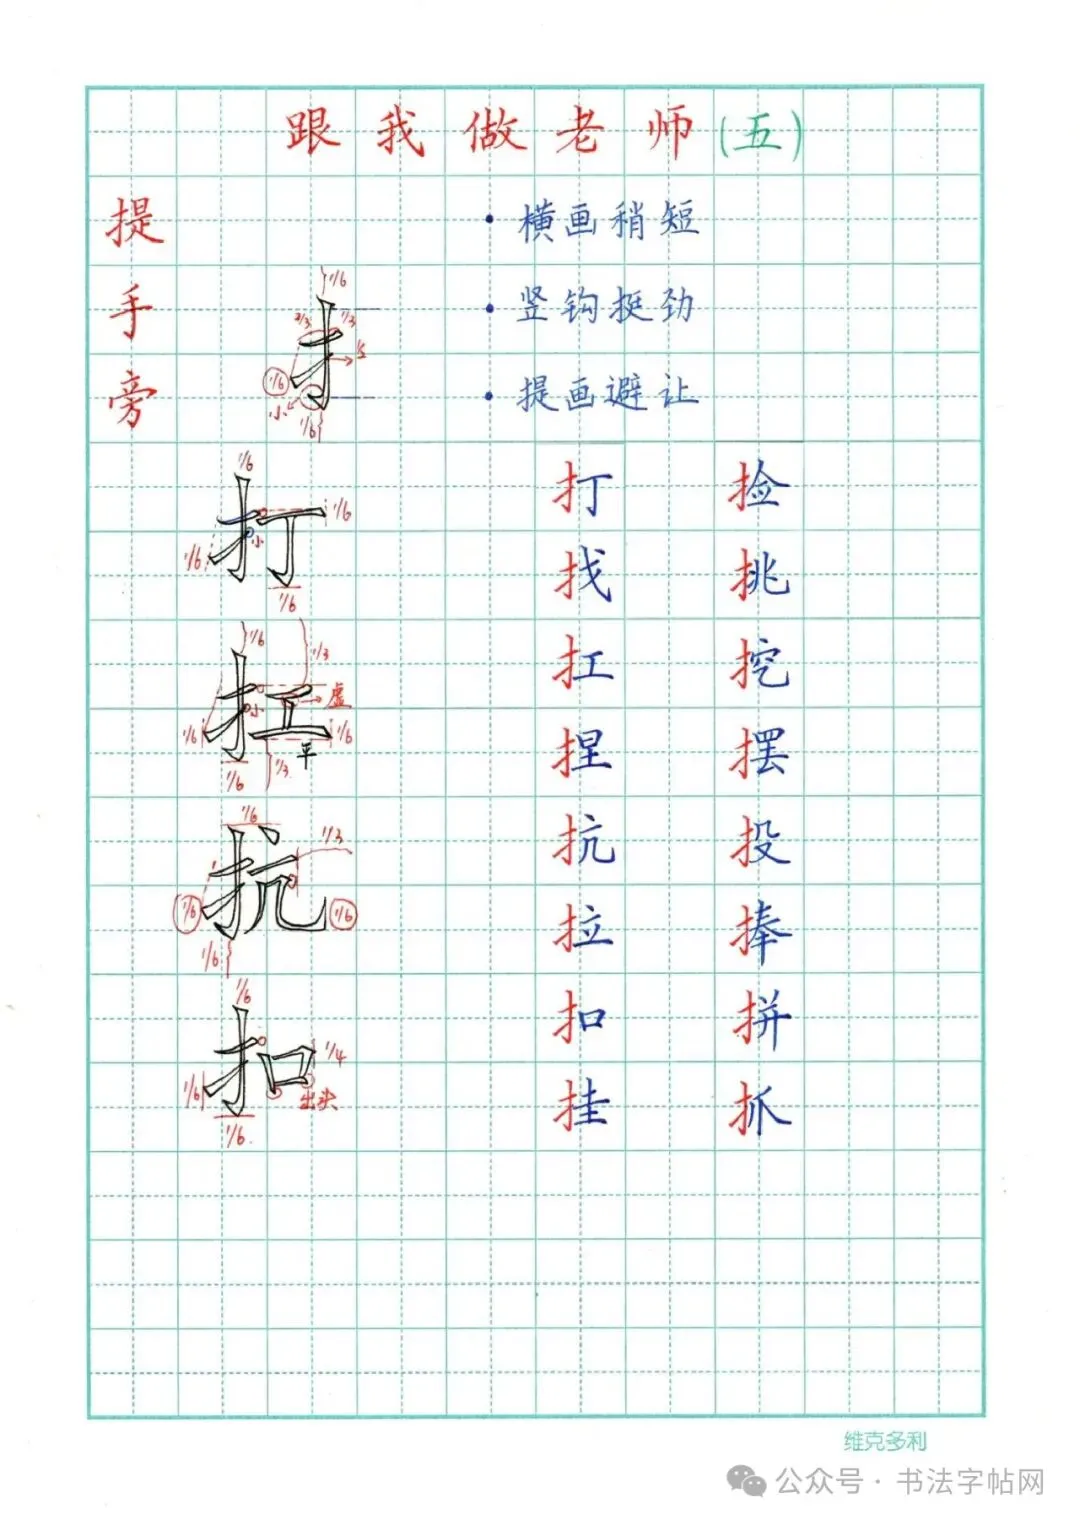 跟我做老师(五)
提手旁
·横画稍短
·竖钩挺劲
·提画避让
1/6
2/3 1/3
1/6
小
1/6
打 捡
1/6
打
1/6
小
1/6
1/6
找 挑
扛 挖
1/6
1/3
扛
虚
小
1/6
1/6
平
1/6
1/3
捏 摆
抗 投
1/6
1/3
抗
1/6
1/6
1/6
拉 捧
扣 拼
1/6
扣
1/4
1/6
出头
1/6
挂 抓
维克多利
公众号·书法字帖网